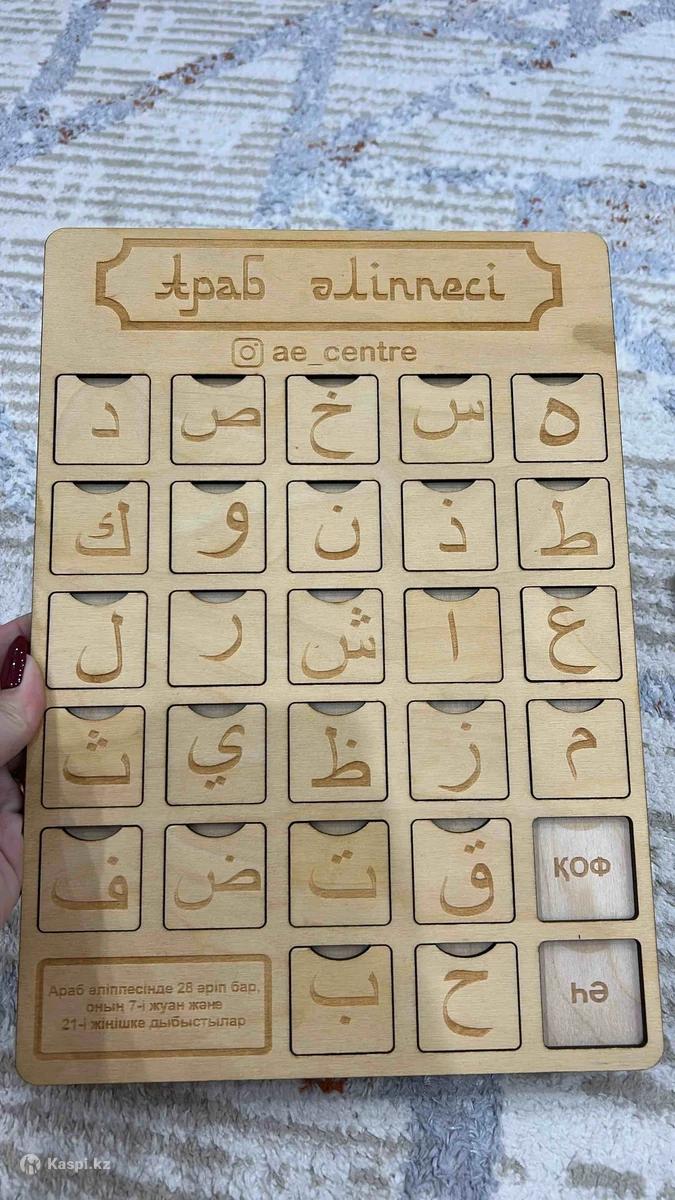 Араб әліппесі
ae_centre
ه س خ ص د
ط ذ ن و ك
ع ا ش ر ل
م ز ظ ي ث
ҚОФ ق ت ض ف
ҺӘ ح ب
Араб әліппесінде 28 әріп бар,
оның 7-і жуан және
21-і жіңішке дыбыстылар
Kaspi.kz